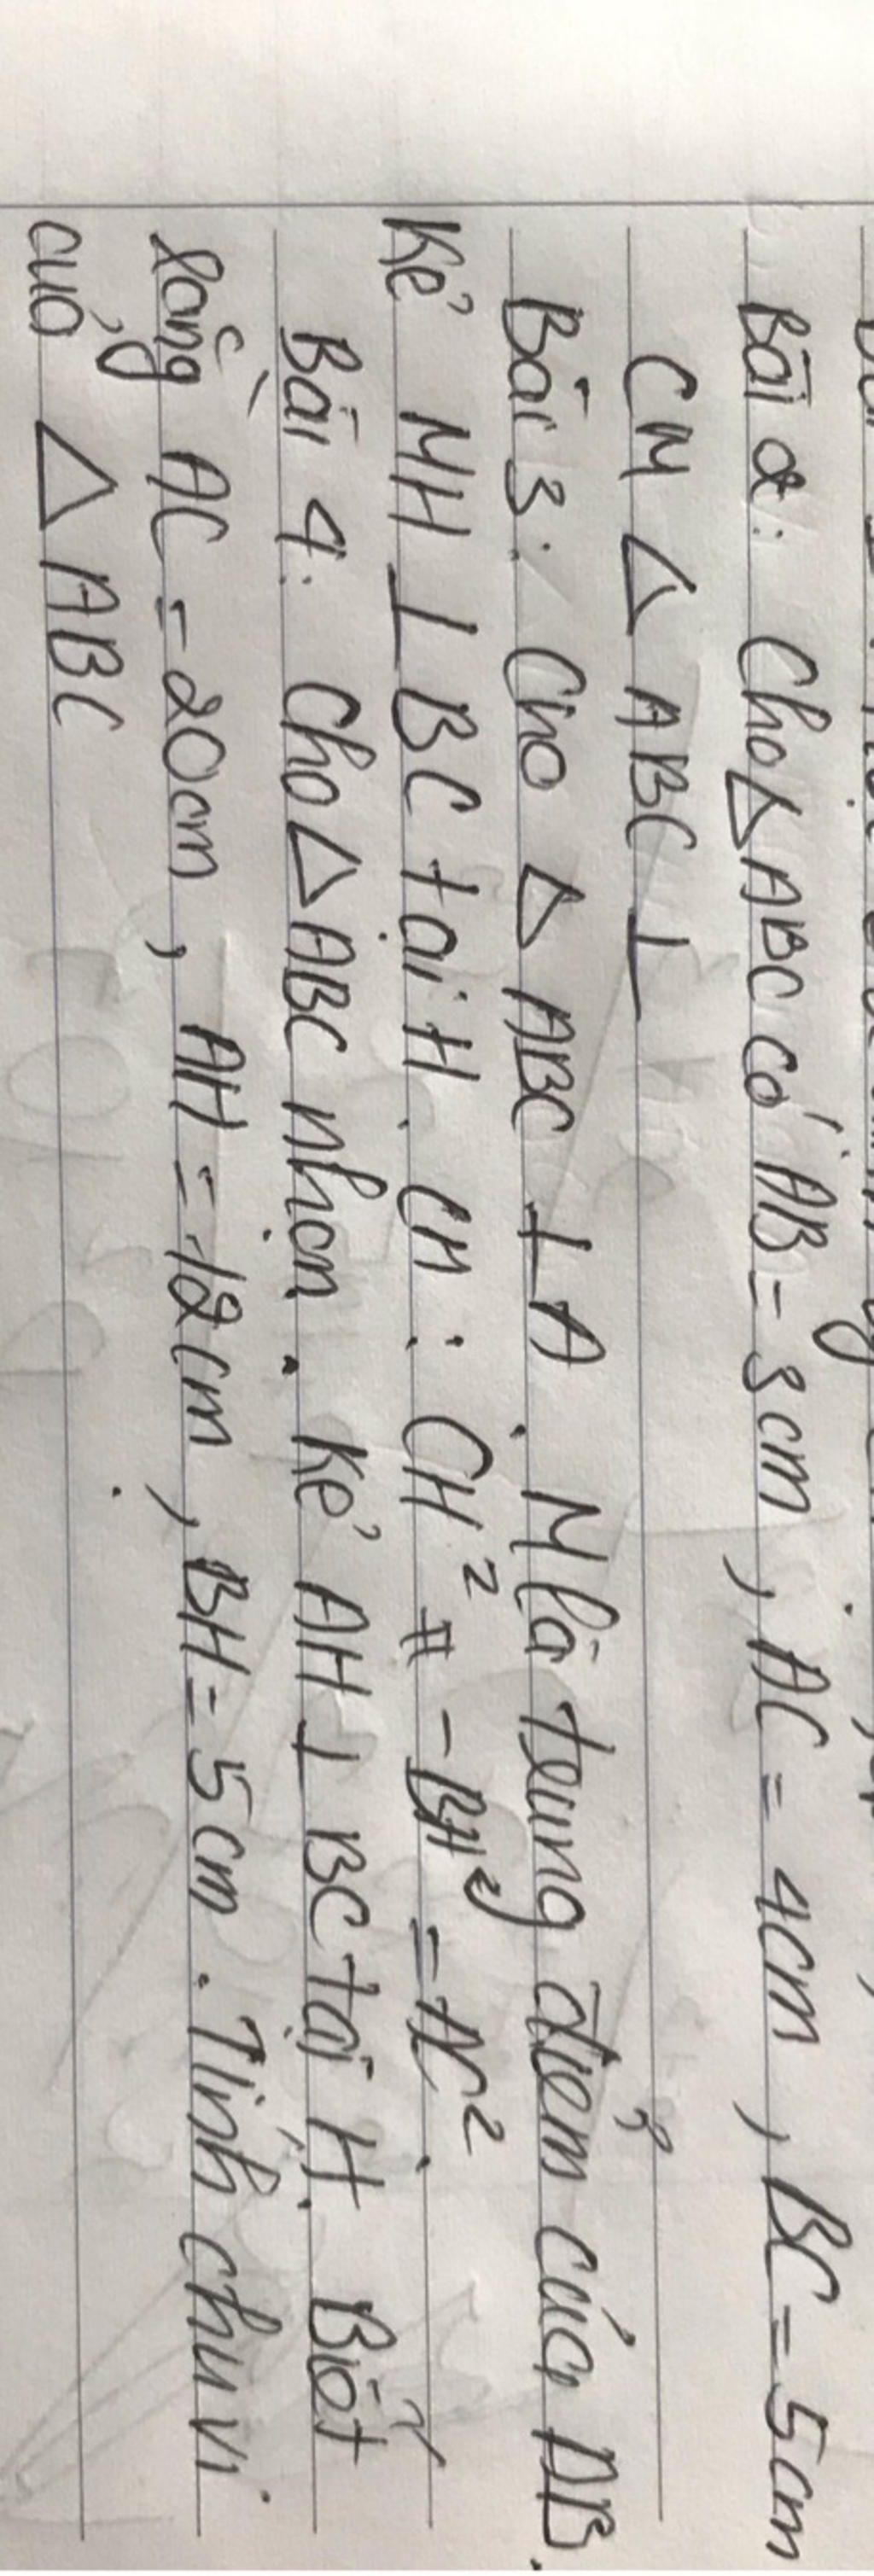 Bài 2: Cho △ ABC có AB = 3cm, AC = 4cm, BC = 5cm
CM △ ABC ⊥
Bài 3: Cho △ ABC ⊥ A. M là trung điểm của AB.
Kẻ MH ⊥ BC tại H. CM: CH² - BH² = AC².
Bài 4: Cho △ ABC nhọn. Kẻ AH ⊥ BC tại H. Biết
rằng AC = 20cm, AH = 12cm, BH = 5cm. Tính chu vi
của △ ABC